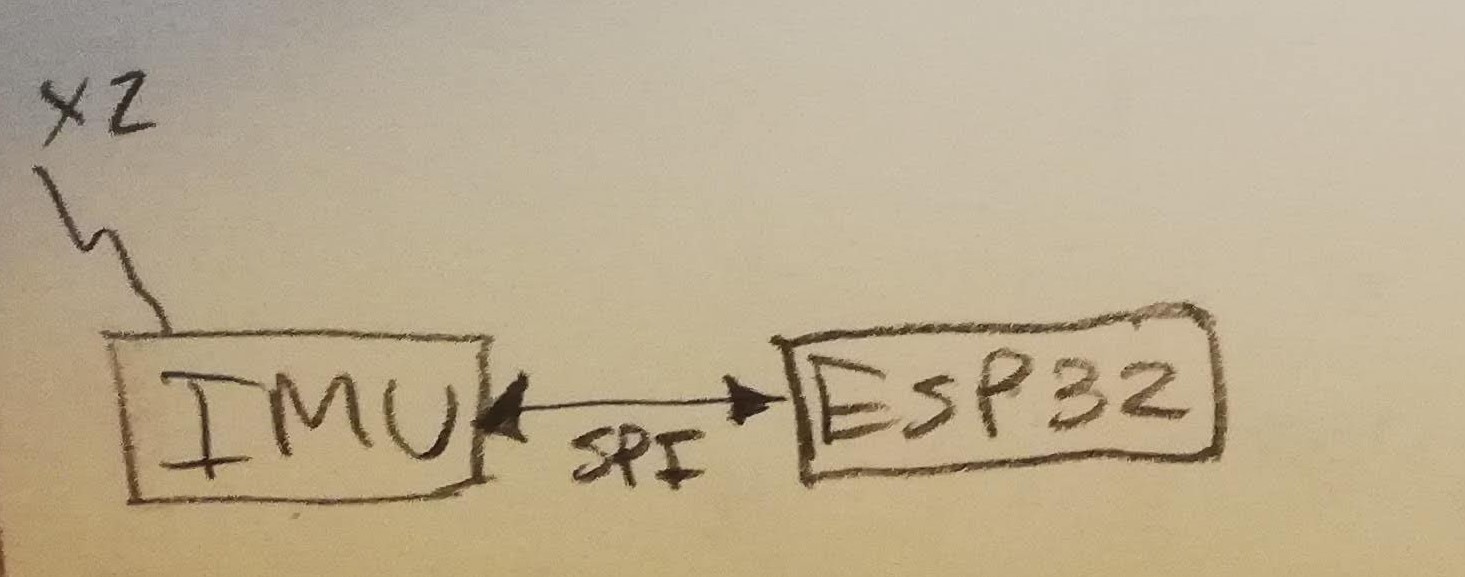 x2
IMU
SPI
ESP32